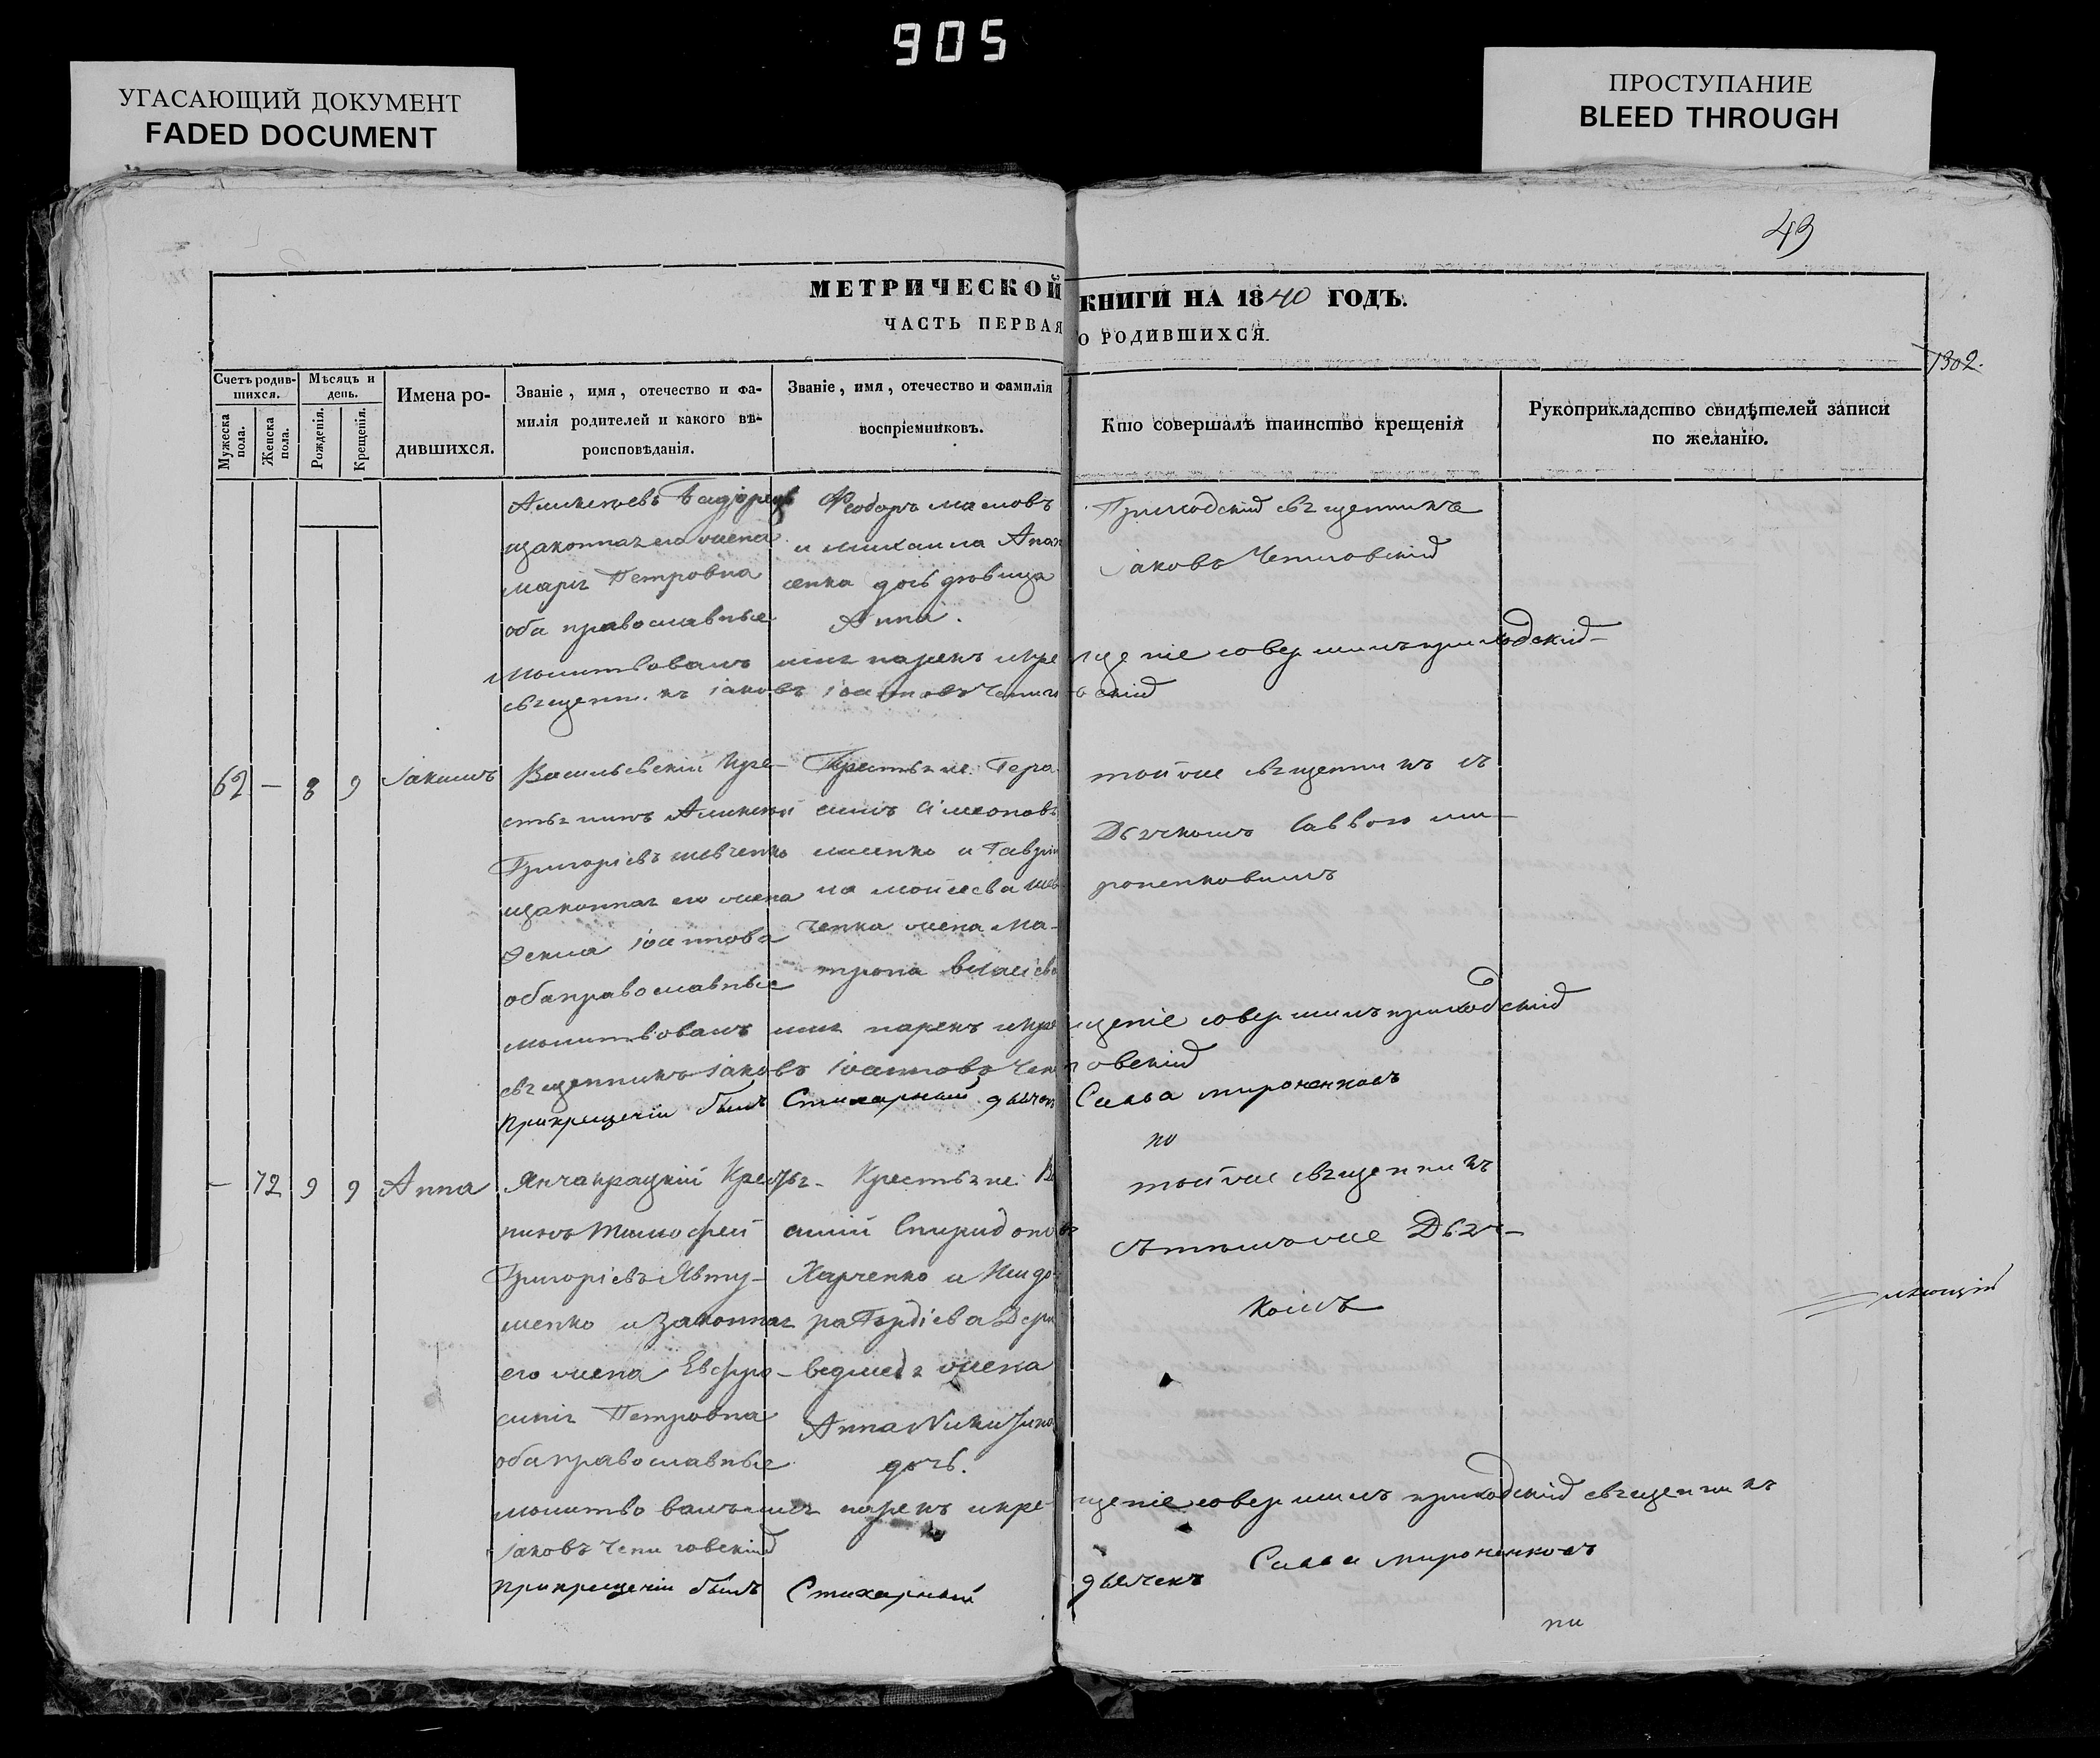 905
УГАСАЮЩИЙ ДОКУМЕНТ
FADED DOCUMENT
ПРОСТУПАНИЕ
BLEED THROUGH
49
МЕТРИЧЕСКОЙ КНИГИ НА 1840 ГОДЪ.
ЧАСТЬ ПЕРВАЯ О РОДИВШИХСЯ.
1302.
Счетъ родившихся.
Мужеска пола.
Женска пола.
Мѣсяцъ и день.
Рожденія.
Крещенія.
Имена родившихся.
Званіе, имя, отечество и фамилія родителей и какого вѣроисповѣданія.
Званіе, имя, отечество и фамилія воспріемниковъ.
Кто совершалъ таинство крещенія
Рукоприкладство свидѣтелей записи по желанію.
Алексѣевъ
изаконная его жена
марія Петровна
оба православные
Ѳеодоръ
и михаила
сенка дочь дѣвица
Анна.
Приходскій священникъ
Іаковъ
молитвовалъ имя нарекъ икрещеніе совершилъ приходскій
священникъ Іаковъ Іоанновъ
69 — 8 9 Іакимъ
Васильевскій Кре-
стьянинъ Алексѣй
Григоріевъ шевченко
изаконная его жена
Ѳекла Іоаннова
оба православные
Крестьяне Гера
симъ Симеоновъ
и Гаври
ла моисеева шев
ченка жена Ма-
трона
тойже священникъ съ
Дьячкомъ Саввою ми-
роненковымъ
молитвовалъ имя нарекъ икрещеніе совершилъ приходскій
священникъ Іаковъ Іоанновъ
прикрещеніи былъ Стихарный дьячокъ Савва мироненковъ
по
— 72 9 9 Анна
Янчакрацкій Кресть-
нинъ Тимофей
Григоріевъ Явту-
шенко изаконная
его жена Евфро-
синія Петровна
оба православные
Крестьяне Ва
силій Спиридоновъ
Харченко и
ра Гордіева Дери
ведмедя жена
Анна
дочь.
тойже священникъ
сътѣмъже Дьяч-
комъ
молитвовалъ имя нарекъ икрещеніе совершилъ приходскій священникъ
Іаковъ
прикрещеніи былъ Стихарный дьячекъ Савва мироненковъ